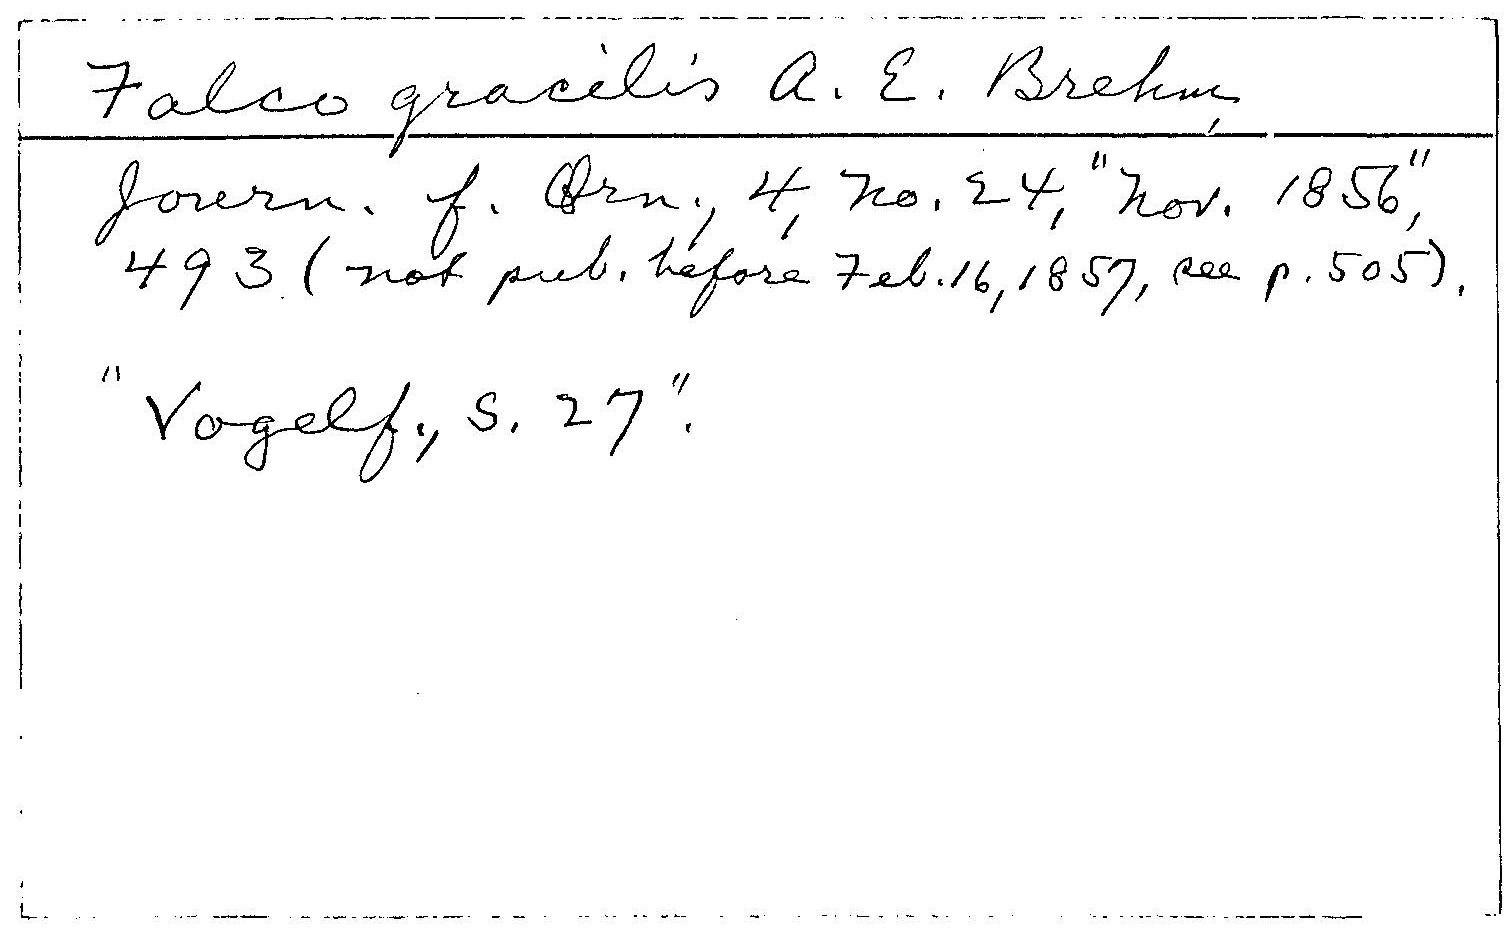 Falco gracilis A. E. Brehm,
Journ. f. Orn., 4, no. 24, "Nov. 1856",
493 (not pub. before Feb. 16, 1857, see p. 505).
"Vogelf., S. 27".